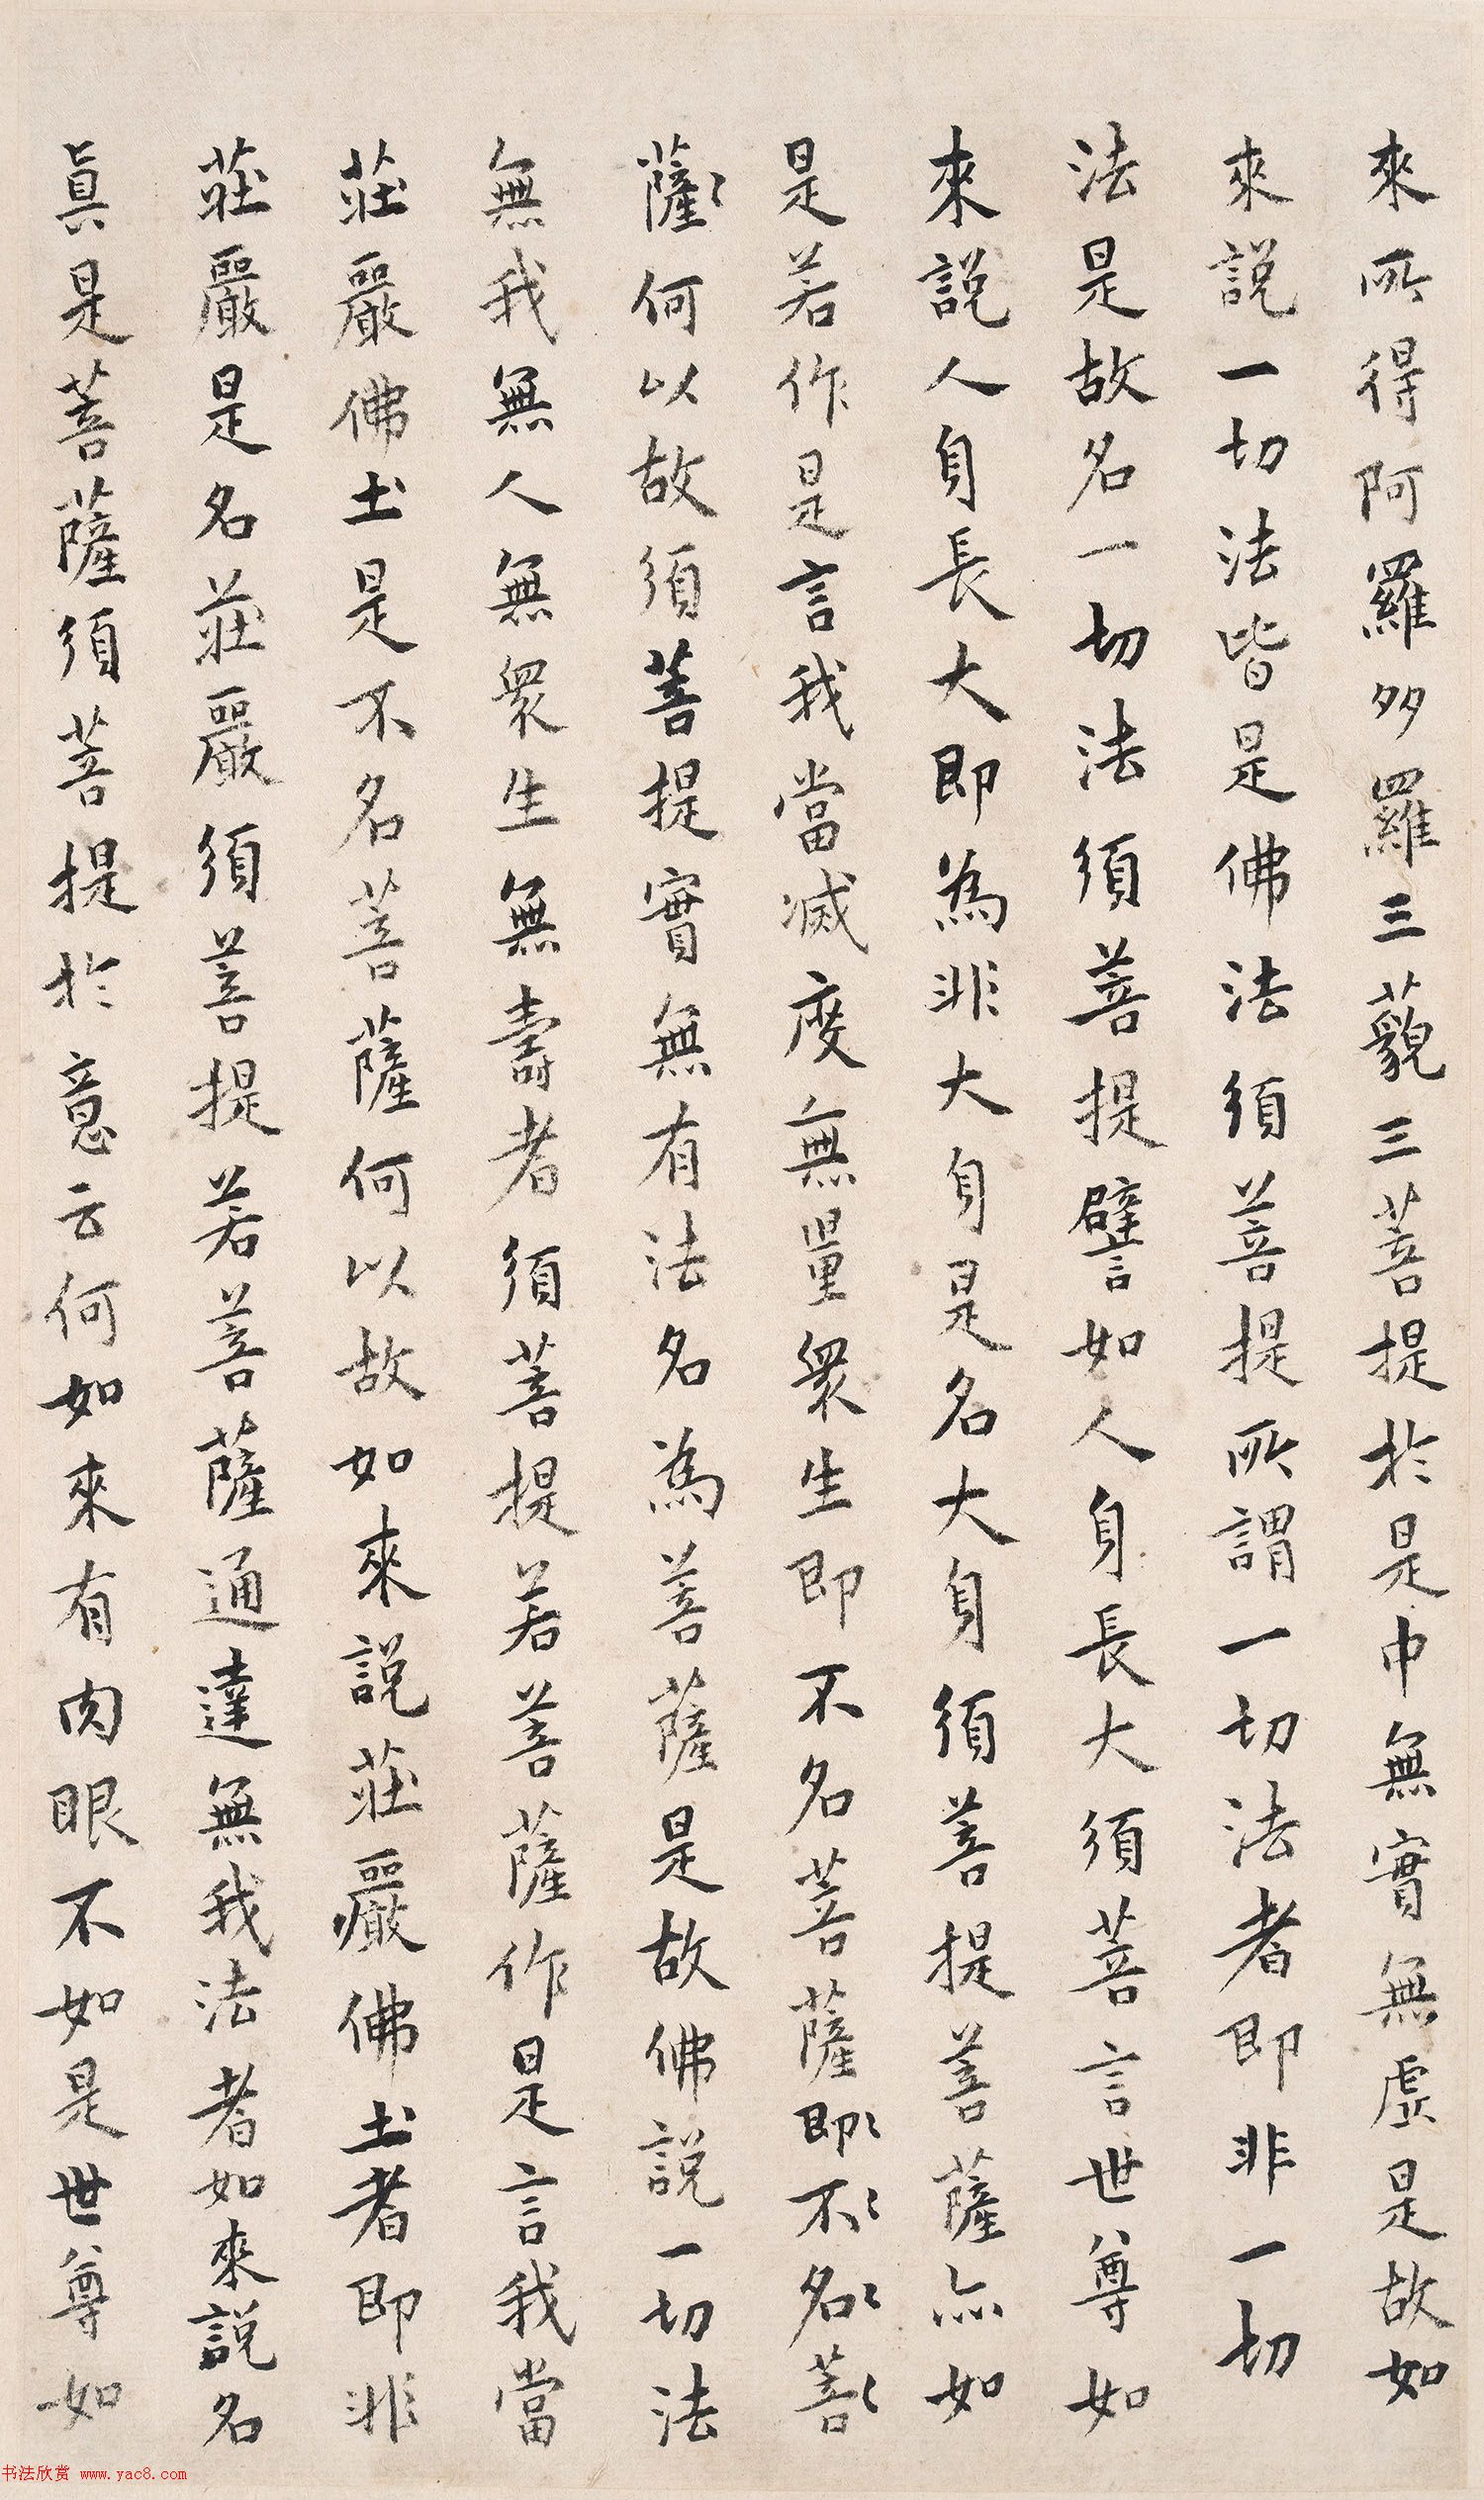 來所得阿羅多羅三藐三菩提於是中無實無虛是故如
來説一切法皆是佛法須菩提所謂一切法者即非一切
法是故名一切法須菩提譬如人身長大須菩言世尊如
來説人身長大即為非大身是名大身須菩提菩薩亦如
是若作是言我當滅度無量眾生即不名菩薩即不名菩
薩何以故須菩提實無有法名為菩薩是故佛説一切法
無我無人無眾生無壽者須菩提若菩薩作是言我當
莊嚴佛土是不名菩薩何以故如來説莊嚴佛土者即非
莊嚴是名莊嚴須菩提若菩薩通達無我法者如來説名
真是菩薩須菩提於意云何如來有肉眼不如是世尊如
书法欣赏 www.yac8.com